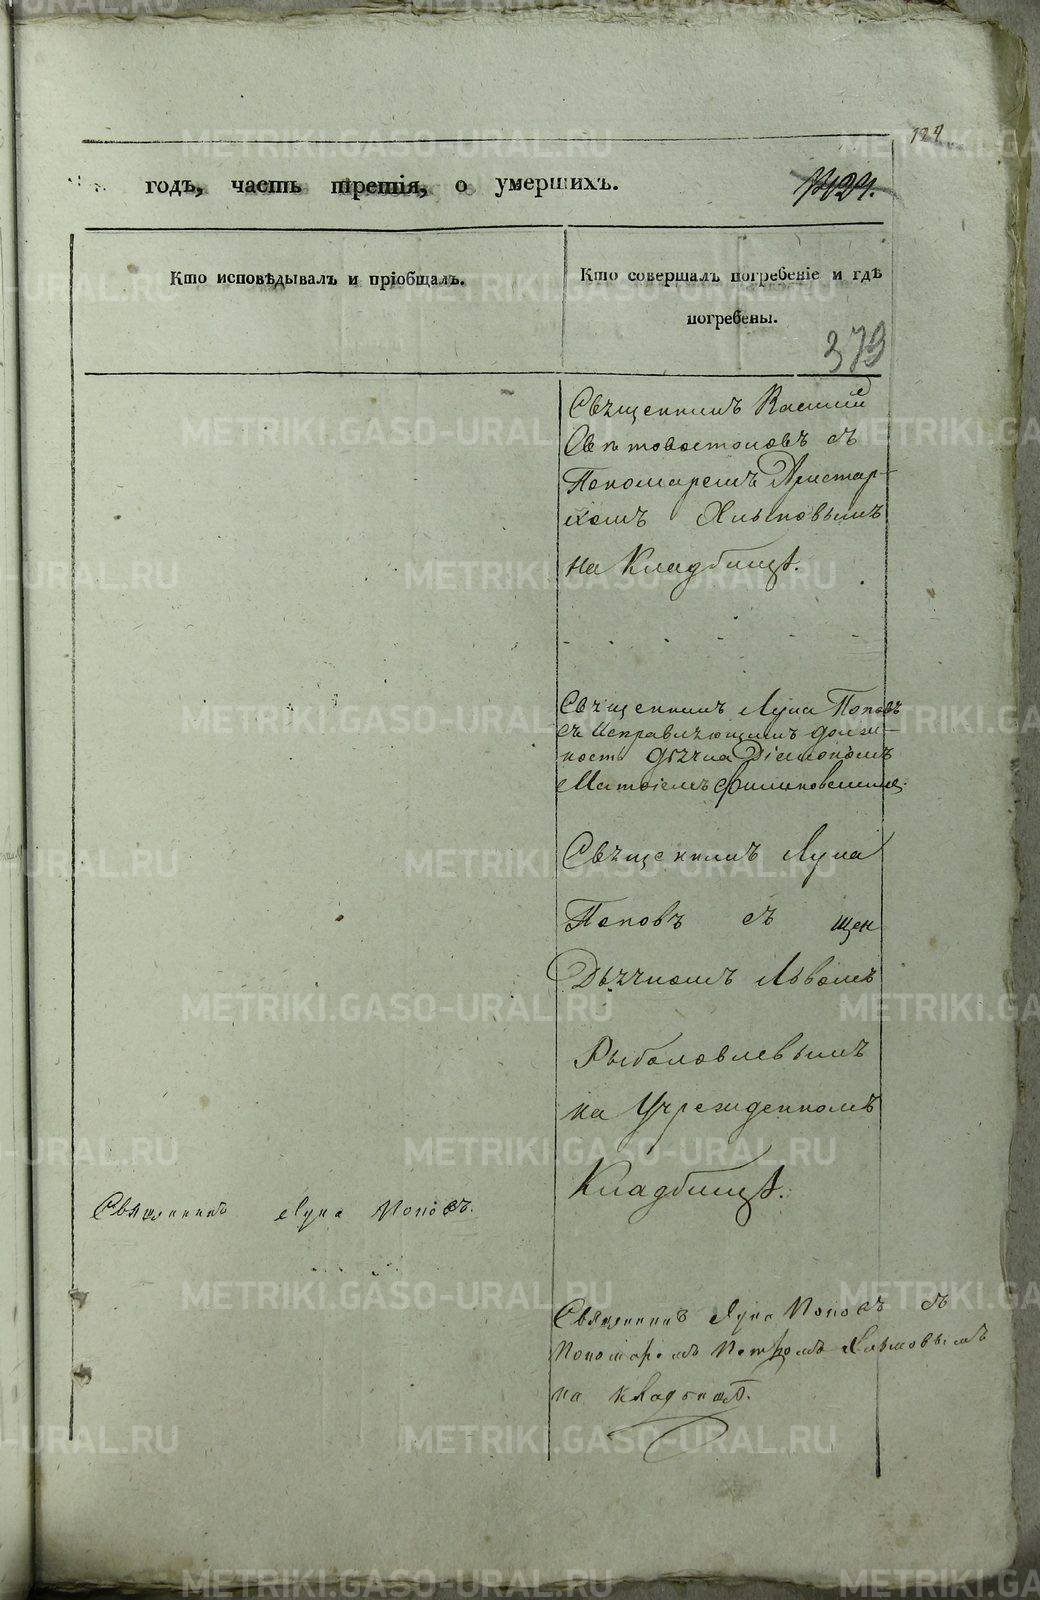 124
годъ, часть третія, о умершихъ.
Кто исповѣдывалъ и пріобщалъ.
Кто совершалъ погребеніе и гдѣ
погребены.
379
Свѧщенникъ Василій
съ
Пономаремъ Аристар-
хомъ Хлыновымъ
на Кладбищѣ.
Свѧщенникъ Лука Поповъ
съ Исправлѧющимъ долж-
ность дьѧчка Діакономъ
Свѧщенникъ Лука
Поповъ съ
Дьѧчкомъ Львомъ
Рыболовлевымъ
на Учрежденномъ
Кладбищѣ.
Священникъ Лука Поповъ.
Священникъ Лука Поповъ съ
Пономаремъ Петромъ
на кладбищѣ.
METRIKI.GASO-URAL.RU